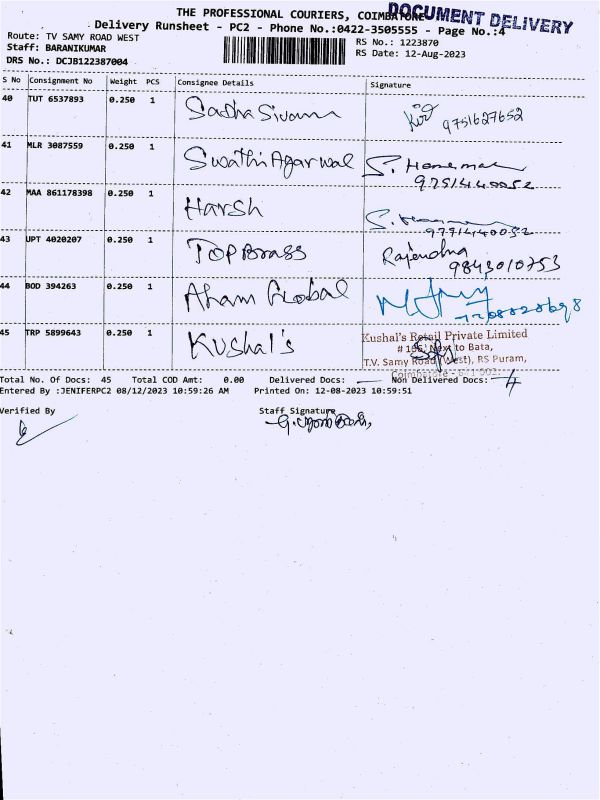 THE PROFESSIONAL COURIERS, COIMBATORE
DOCUMENT DELIVERY
Delivery Runsheet - PC2 - Phone No.:0422-3505555 - Page No.:4
Route: TV SAMY ROAD WEST
RS No.: 1223870
Staff: BARANIKUMAR
RS Date: 12-Aug-2023
DRS No.: DCJB122387004
S No Consignment No Weight PCS Consignee Details Signature
40 TUT 6537893 0.250 1 Sadha Sivam 9751627652
41 MLR 3087559 0.250 1 Swathi Agarwal
9791440052
42 MAA 861178398 0.250 1 Harsh
9791440052
43 UPT 4020207 0.250 1 TOP Brass Rajendra
9843010753
44 BOD 394263 0.250 1 Aham Global
45 TRP 5899643 0.250 1 Kushal's
Kushal's Retail Private Limited
Next to Bata,
T.V. Samy Road (West), RS Puram,
Coimbatore - 641 002.
Total No. Of Docs: 45 Total COD Amt: 0.00 Delivered Docs: — Non Delivered Docs: 4
Entered By :JENIFERPC2 08/12/2023 10:59:26 AM Printed On: 12-08-2023 10:59:51
Verified By Staff Signature